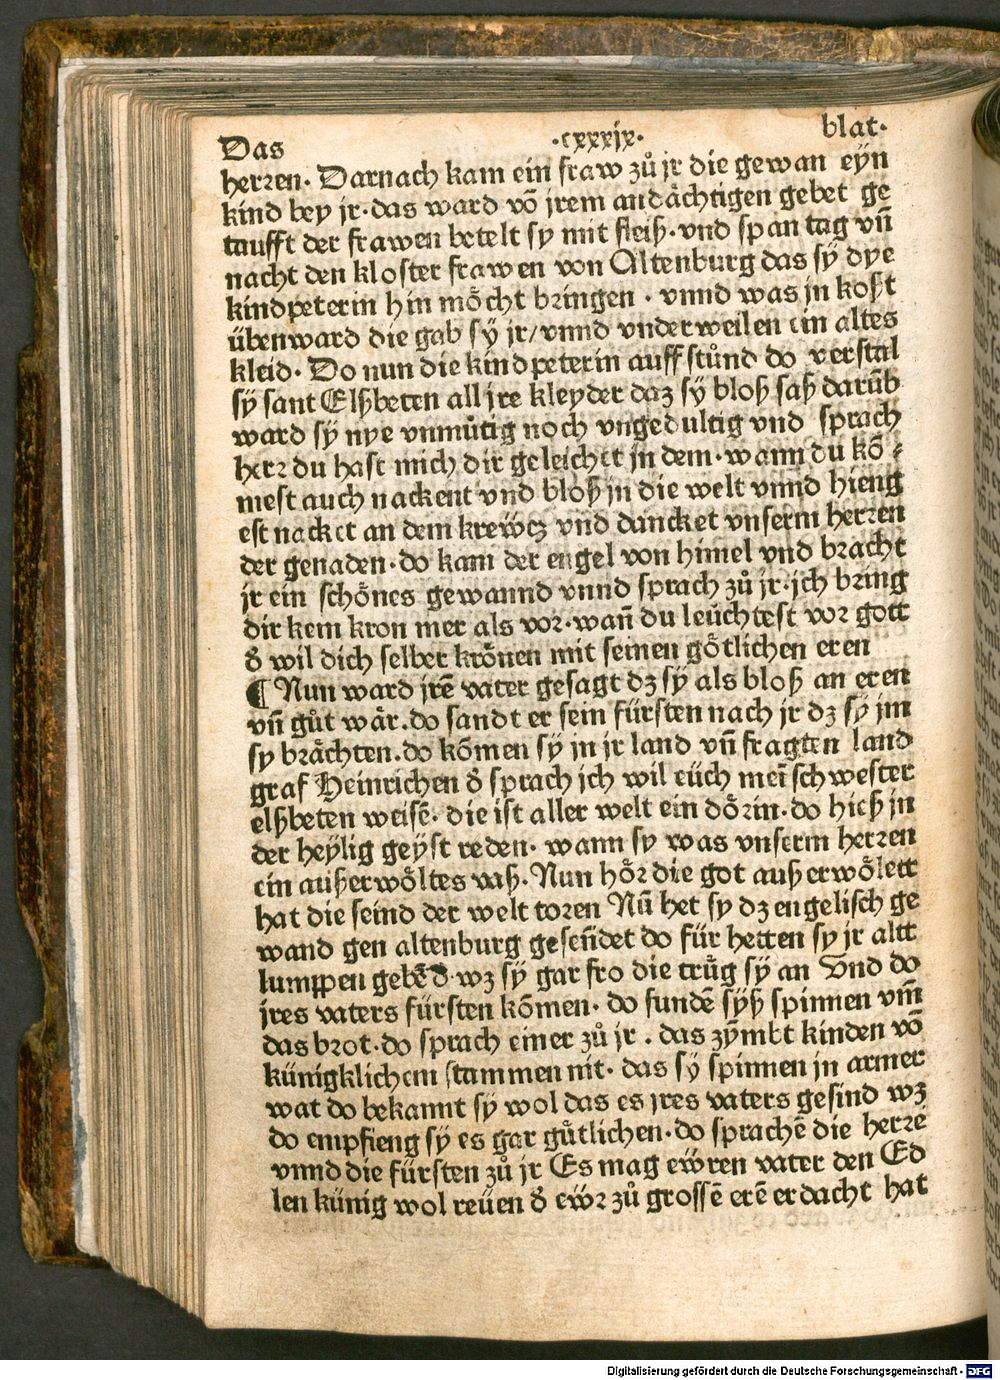 Das .cxxxix. blat.
herren. Darnach kam ein fraw zů jr die gewan eÿn
kind bey jr. das ward võ jrem andächtigen gebet ge
taufft der frawen betelt sy mit fleiß. vnd span tag vñ
nacht den kloster frawen von Altenburg das sÿ dye
kindpeterin hin möcht bringen . vnnd was jn kost
übenward die gab sÿ jr/ vnnd vnderweilen ein altes
kleid. Do nun die kindpeterin auff stůnd do verstal
sÿ sant Elßbeten all jre kleyder daz sÿ bloß saß darũb
ward sÿ nye vnmůtig noch vngedultig vnd sprach
herr du hast mich dir geleichet jn dem. wann du kõ⸗
mest auch nackent vnd bloß jn die welt vnnd hieng
est nacket an dem krewcz vnd dancket vnserm herren
der genaden. do kam der engel von himel vnd bracht
jr ein schönes gewannd vnnd sprach zů jr. jch bring
dir kein kron mer als vor. wañ du leüchtest vor gott
d̄ wil dich selber krönen mit seinen götlichen eren
¶ Nun ward jrẽ vater gesagt dz sÿ als bloß an eren
vñ gůt wär. do sandt er sein fürsten nach jr dz sÿ jm
sy brächten. do kõmen sÿ jn jr land vñ fragten land
graf Heinrichen d̄ sprach jch wil eüch meĩ schwester
elßbeten weisẽ. die ist aller welt ein dörin. do hieß jn
der heÿlig geÿst reden. wann sy was vnserm herren
ein außerwöltes vaß. Nun hör die got außerwölett
hat die seind der welt toren Nũ het sy dz engelisch ge
wand gen altenburg geseñdet do für hetten sy jr altt
lumppen gebẽ d̄. wz sÿ gar fro die trůg sÿ an Vnd do
jres vaters fürsten kõmen. do fundẽ sÿß spinnen vm̃
das brot. do sprach einer zů jr . das zỹmbt kinden võ
künigklichem stammen nit. das sÿ spinnen jn armer
wat do bekannt sÿ wol das es jres vaters gesind wz
do empfieng sÿ es gar gůtlichen. do sprachẽ die herre
vnnd die fürsten zů jr Es mag eẅren vater den Ed
len künig wol reüen d̄ eẅr zů grossẽ erẽ erdacht hat
Digitalisierung gefördert durch die Deutsche Forschungsgemeinschaft - DFG